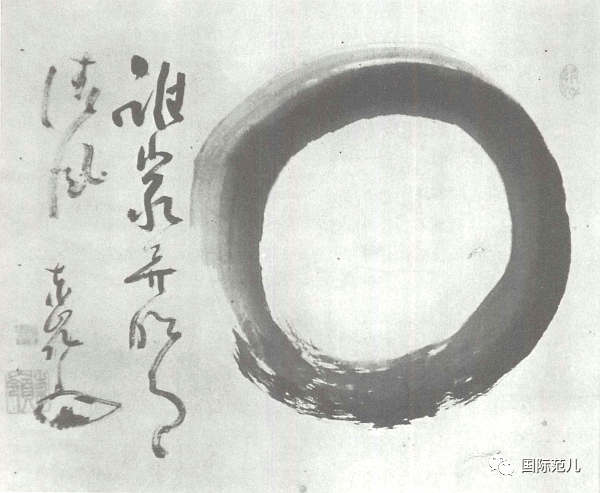 誰家无明月
清風
東嶺
国际范儿